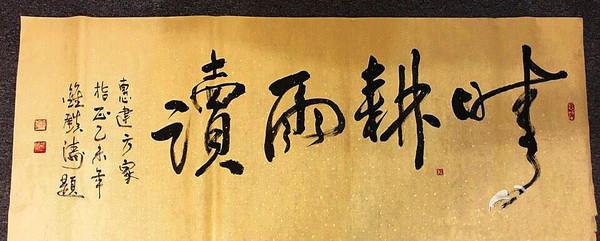 晴耕雨讀
惠建方家
指正乙未年
濤題